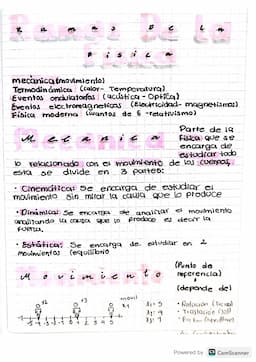 Ramas De La
Física
mecánica (movimiento)
Termodinámica (calor - Temperatura)
Eventos ondulatorios (acústica - Optica)
Eventos electromagneticos (Electricidad - magnetismos)
Física moderna (cuantos de E - relativismo)
Mecánica
Parte de la
física que se
encarga de
estudiar todo
lo relacionado con el movimiento de los cuerpos,
esta se divide en 3 partes:
• Cinemática: Se encarga de estudiar el
movimiento sin mirar la causa que lo produce
• Dinámica: Se encarga de analizar el movimiento
analizando la causa que lo produce es decir la
fuerza.
• Estática: Se encarga de estudiar en 2
movimientos (equilibrio
Movimiento
(Punto de
referencia)
(depende de)
movil
• Rotación
• Traslación